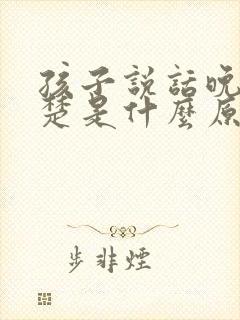 孩子説話晚
楚是什麼原
步非煙